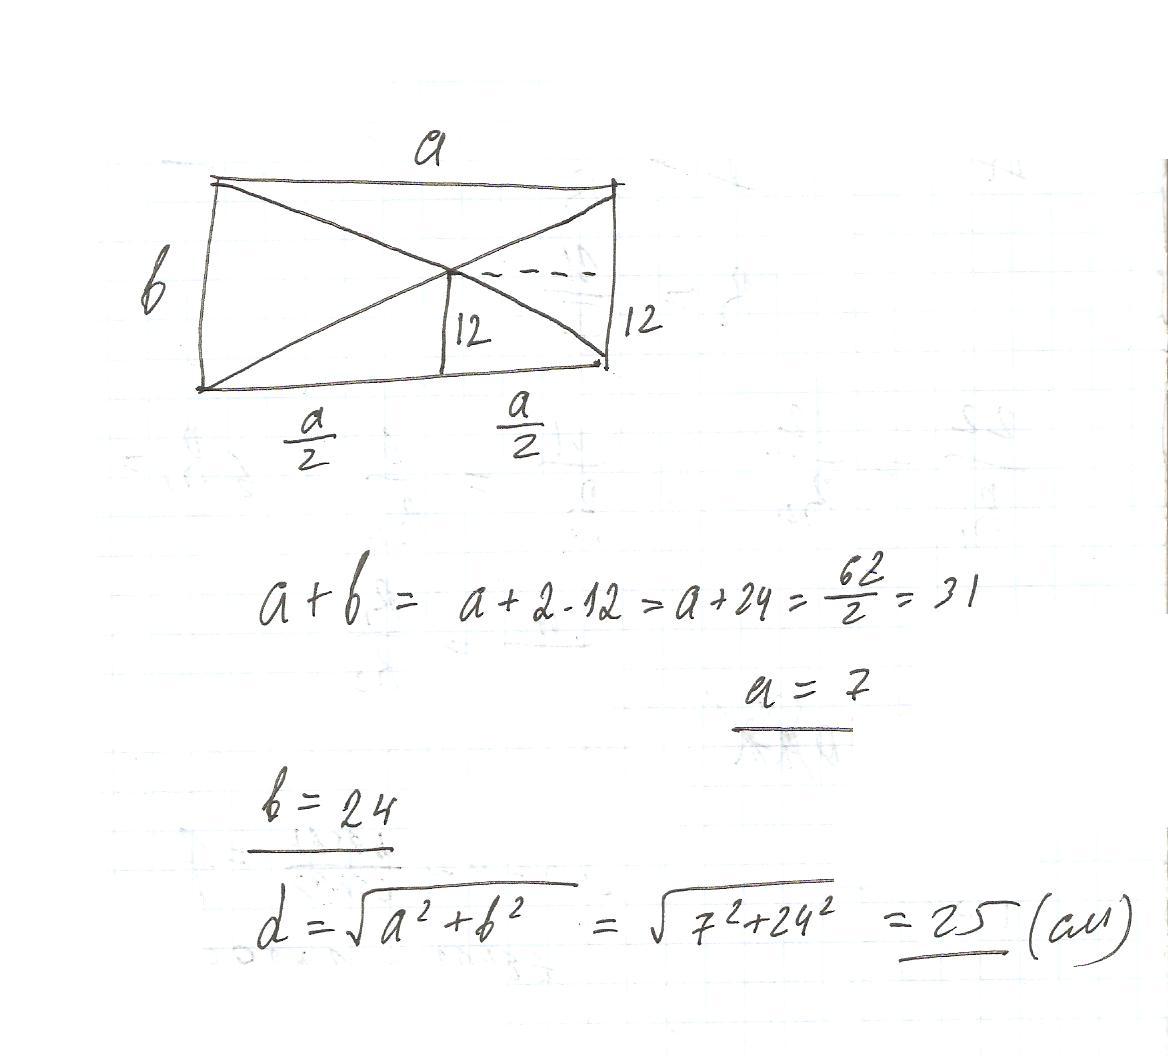 a
b
12
12
a/2
a/2
a + b = a + 2·12 = a + 24 = 62/2 = 31
a = 7
b = 24
d = √(a² + b²) = √(7² + 24²) = 25 (см)